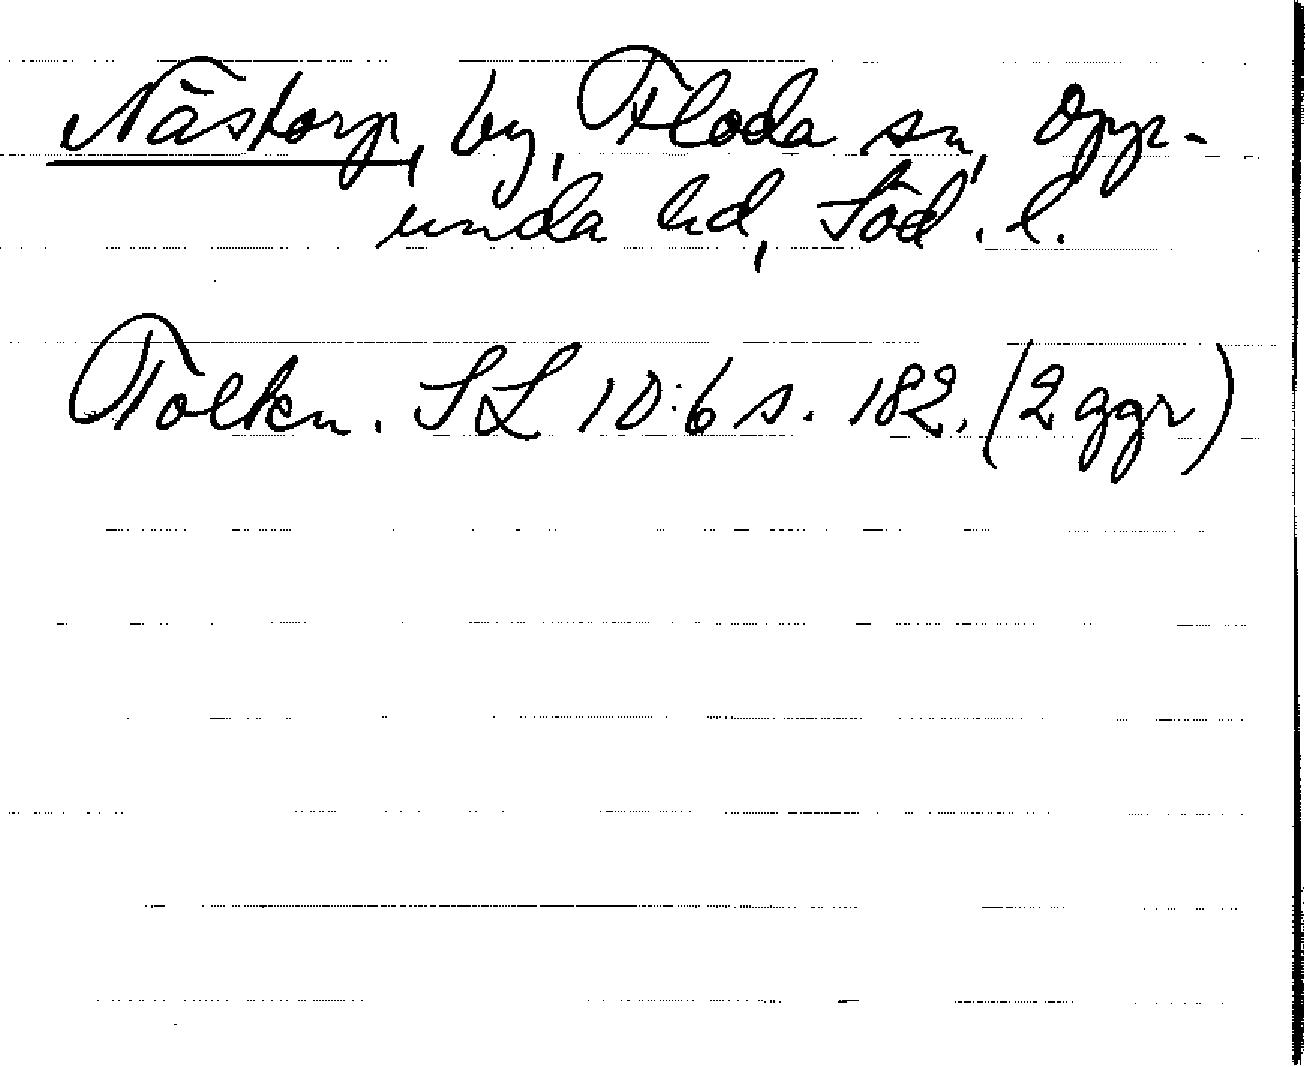 Nästorp, by, Floda sn, Opp-
unda hd, Söd. l.
Tolkn. SL 10:6 s. 182. (2 ggr)